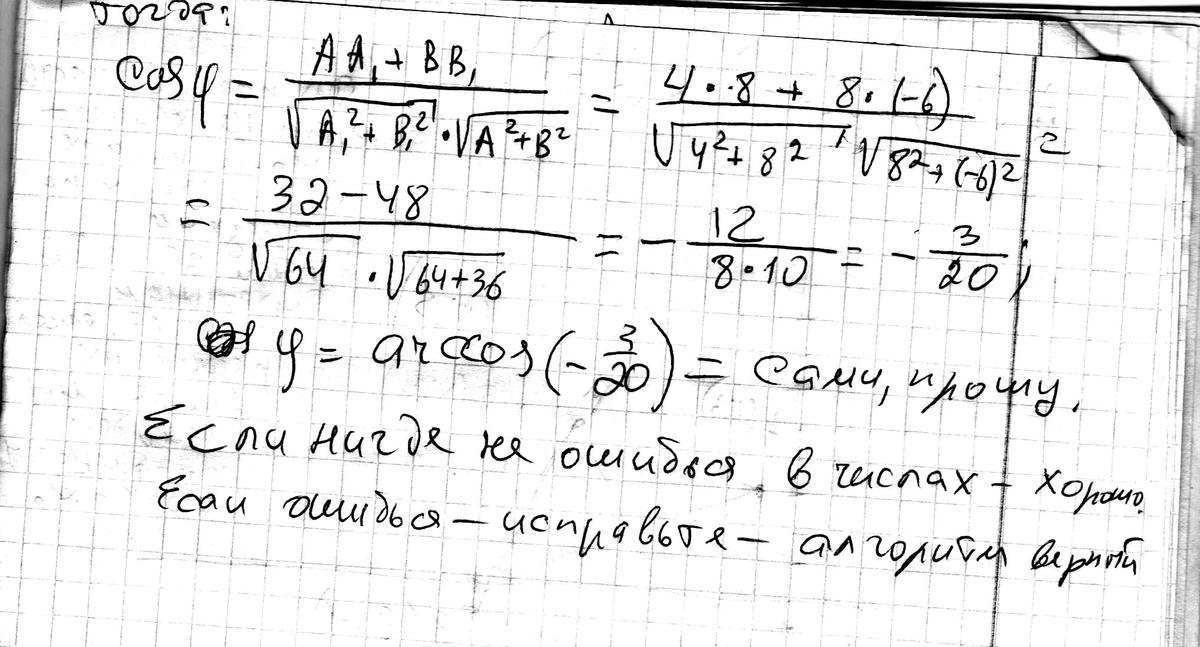 тогда:
cos φ = (AA₁ + BB₁) / (√(A₁² + B₁²) · √(A² + B²)) = (4 · 8 + 8 · (-6)) / (√(4² + 8²) √(8² + (-6)²)) =
= (32 - 48) / (√64 · √(64+36)) = - 12 / (8 · 10) = - 3/20 ;
φ = arccos(- 3/20) = сами, прошу.
Если нигде не ошибься в числах - хорошо.
Если ошибься - исправьте - алгоритм верный